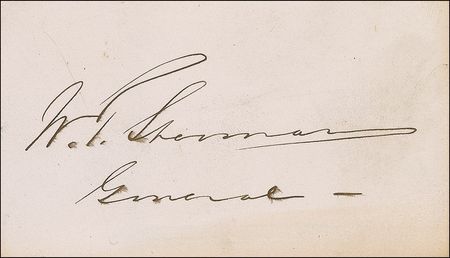 W. T. Sherman
General –